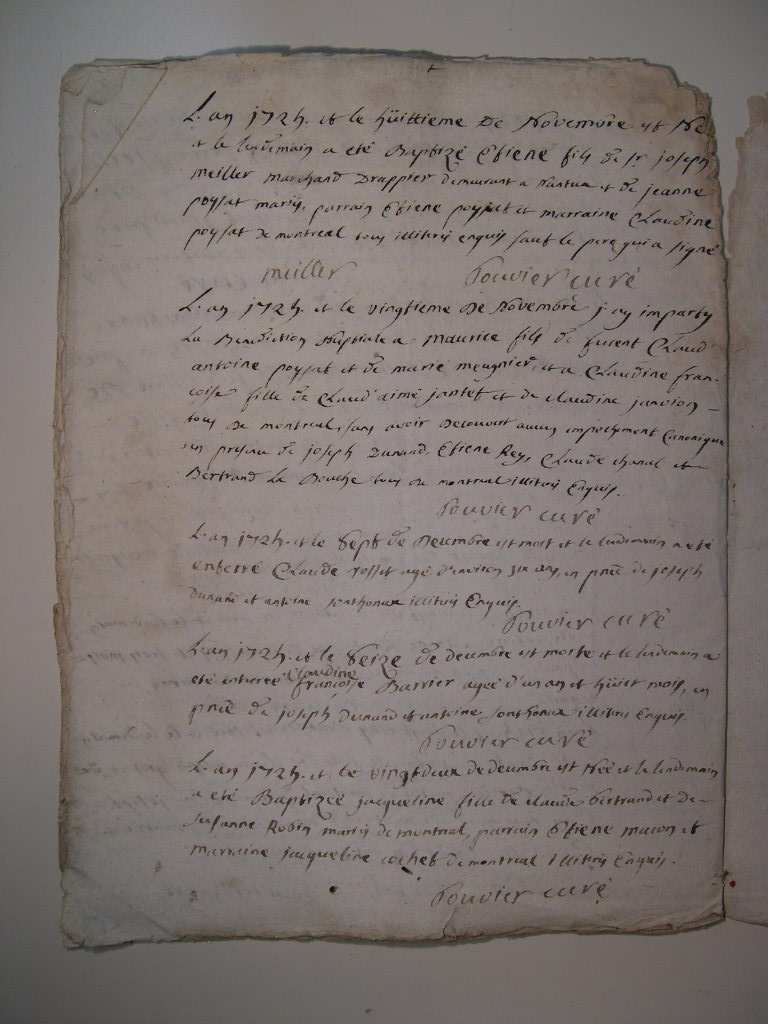 L'an 1724. et le hüittieme de Novembre est Né
et le lendemain a eté Baptizé Etiene fils de sr joseph
meiller marchand Drappier demeurant a Nantua et de jeanne
poysat mariés, parrain Etiene poysat et marraine Claudine
poysat de montreal tous illitrés enquis sauf le pere qui a signé
meiller Bouvier curé
L'an 1724. et le vingtieme de Novembre j'ay imparty
La Benediction Nuptiale a maurice fils de furent Claud'
antoine poysat et de marie meugnier, et a Claudine fran-
coise fille de Claud' aimé jantet et de claudine janvion
tous de montreal, sans avoir decouvert aucun empechement Canonique
en presence de joseph Dunand, Etiene Rey, Claude chanal et
Bertrand La Bouche tous de montreal illitrés Enquis.
Bouvier curé
L'an 1724. et le Sept de decembre est mort et le lendemain a eté
enterré Claude rosset agé d'environ six ans, en pñce de joseph
Dunand et antoine sonthonax illitrés Enquis.
Bouvier curé
L'an 1724. et le Seize de decembre est morte et le lendemain a
eté enterrée Claudine françoise Barrier agée d'un an et hüict mois, en
pñce de joseph Dunand et antoine sonthonax illitrés Enquis.
Bouvier curé
L'an 1724. et le vingtdeux de decembre est Née et le lendemain
a eté Baptizée jacqueline fille de claude bertrand et de
Susanne Robin mariés de montreal, parrain Etiene macon et
marraine jacqueline cochet de montreal illitrés Enquis.
Bouvier curé